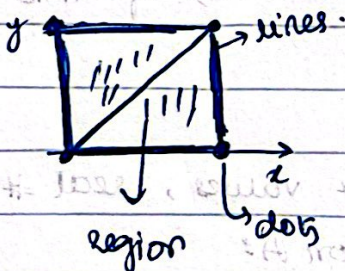 y
lines.
x
region
dots